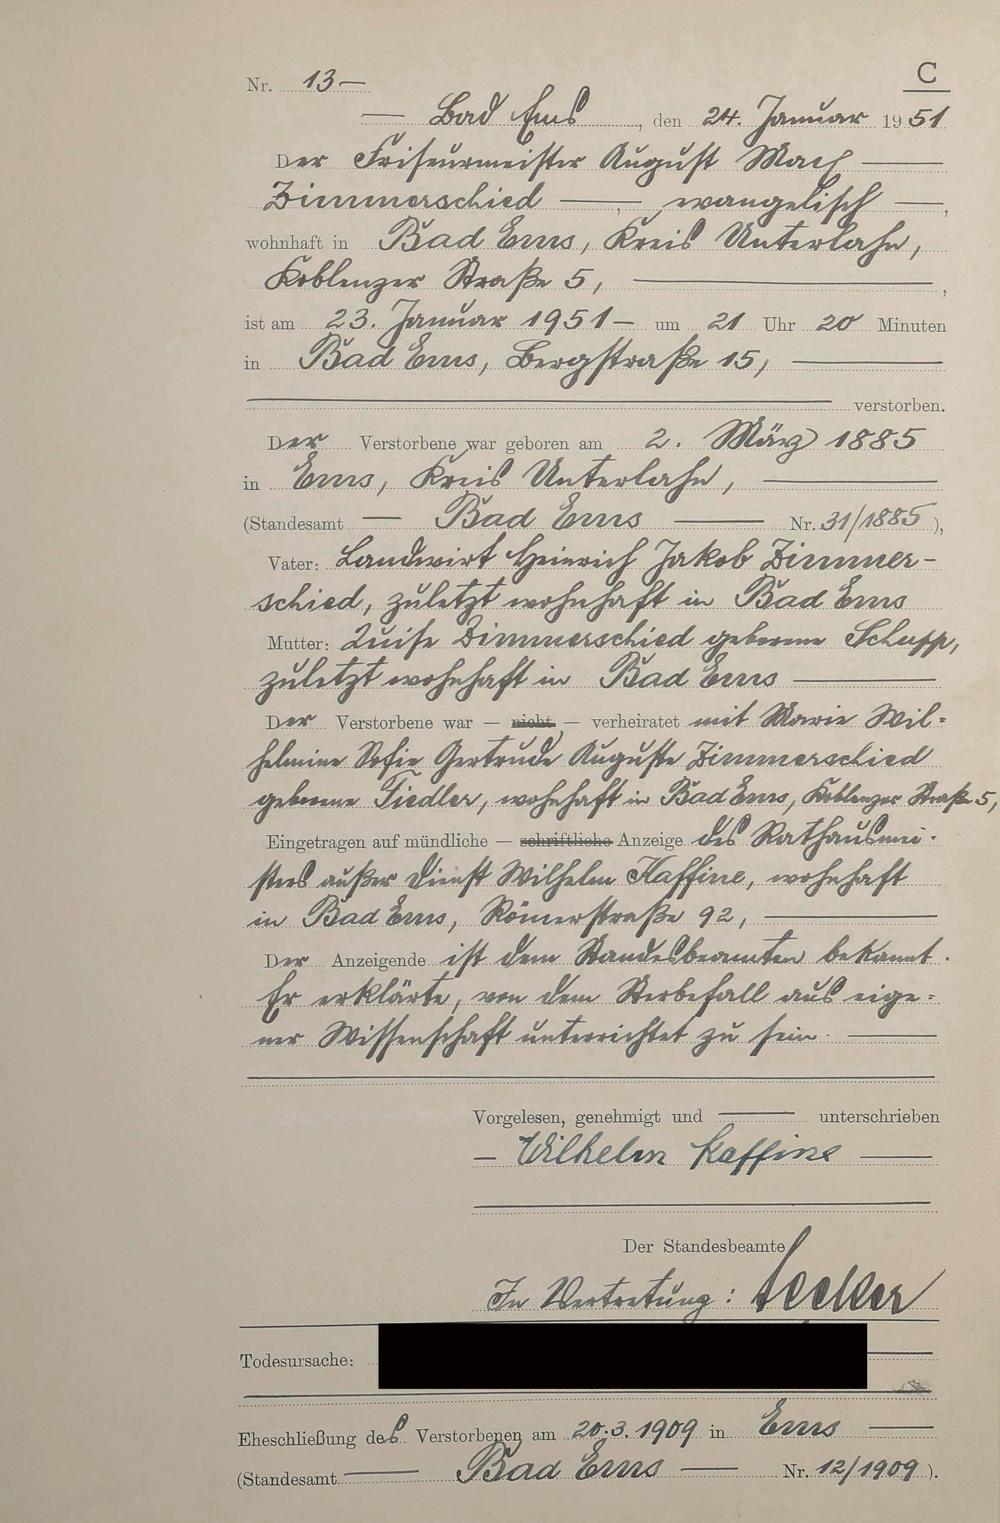 C
Nr. 13 —
— Bad Ems, den 24. Januar 1951
Der Friseurmeister August
Zimmerschied —, — evangelisch —,
wohnhaft in Bad Ems, Kreis Unterlahn,
Koblenzer Straße 5, —,
ist am 23. Januar 1951 — um 21 Uhr 20 Minuten
in Bad Ems, Bergstraße 15, —
— verstorben.
Der Verstorbene war geboren am 2. März 1885
in Ems, Kreis Unterlahn, —
(Standesamt — Bad Ems — Nr. 31/1885),
Vater: Landwirt Heinrich Jakob Zimmer-
schied, zuletzt wohnhaft in Bad Ems
Mutter: Luise Zimmerschied geborene Schupp,
zuletzt wohnhaft in Bad Ems —
Der Verstorbene war — nicht — verheiratet mit Marie Wil=
helmine Sofie Gertrude Auguste Zimmerschied
geborene Fiedler, wohnhaft in Bad Ems, Koblenzer Straße 5,
Eingetragen auf mündliche — schriftliche Anzeige des Rathausmei-
sters außer Dienst Wilhelm Kaffine, wohnhaft
in Bad Ems, Römerstraße 92, —
Der Anzeigende ist dem Standesbeamten bekannt.
Er erklärte, von dem Sterbefall aus eige=
ner Wissenschaft unterrichtet zu sein —
Vorgelesen, genehmigt und — unterschrieben
— Wilhelm Kaffine —
Der Standesbeamte
In Vertretung:
Todesursache:
Eheschließung des Verstorbenen am 20.3.1909 in Ems —
(Standesamt — Bad Ems — Nr. 12/1909).